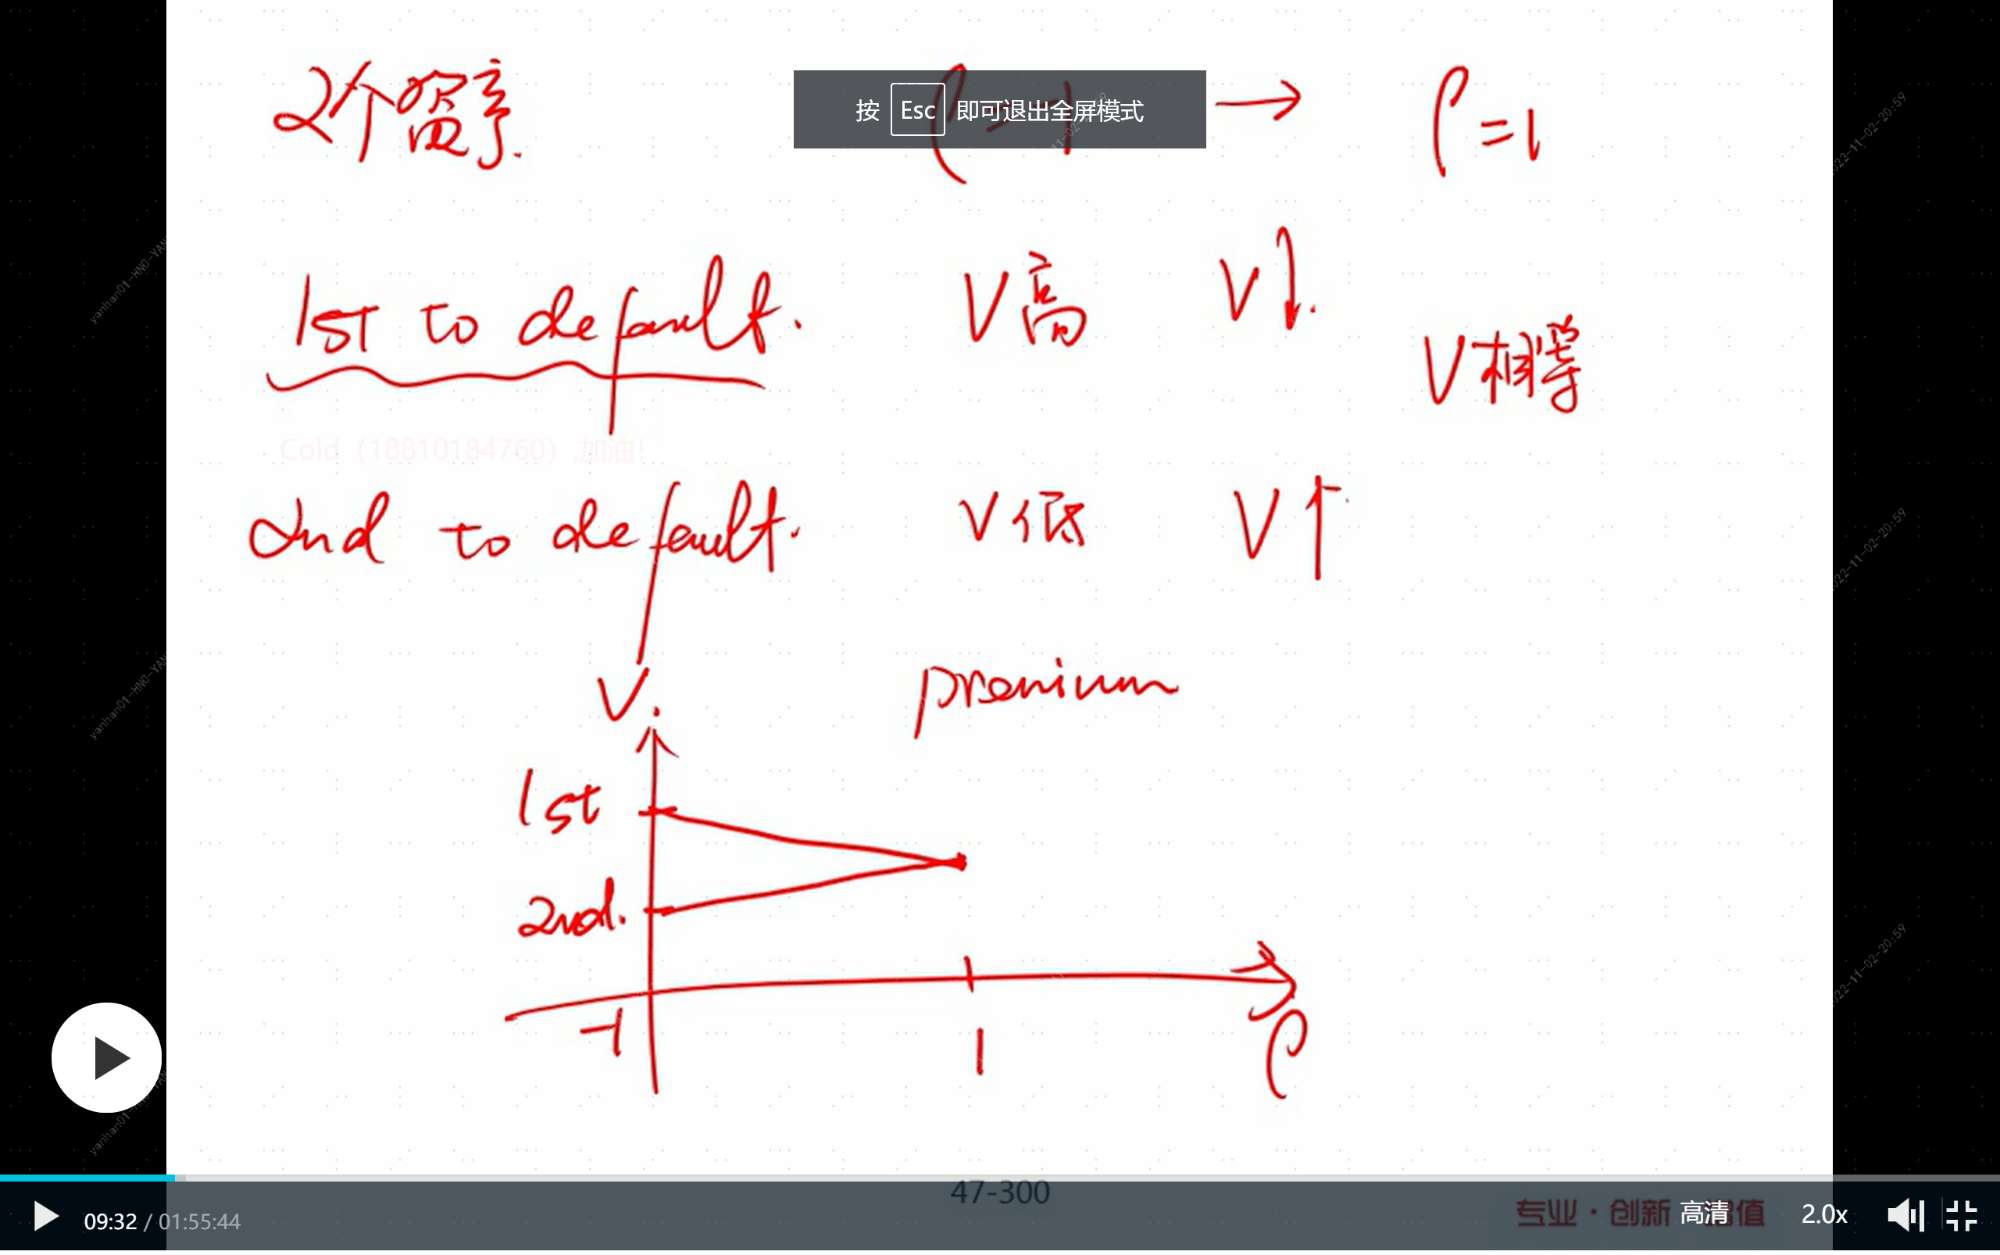 2个资产.
ρ=-1 → ρ=1
按 Esc 即可退出全屏模式
1st to default. V高 V↓.
V相等
Cold（18810184760）,加油!
2nd to default. V低 V↑
V.
premium
1st
2nd.
-1 1 ρ
47-300
专业·创新 增值
09:32 / 01:55:44 高清 2.0x